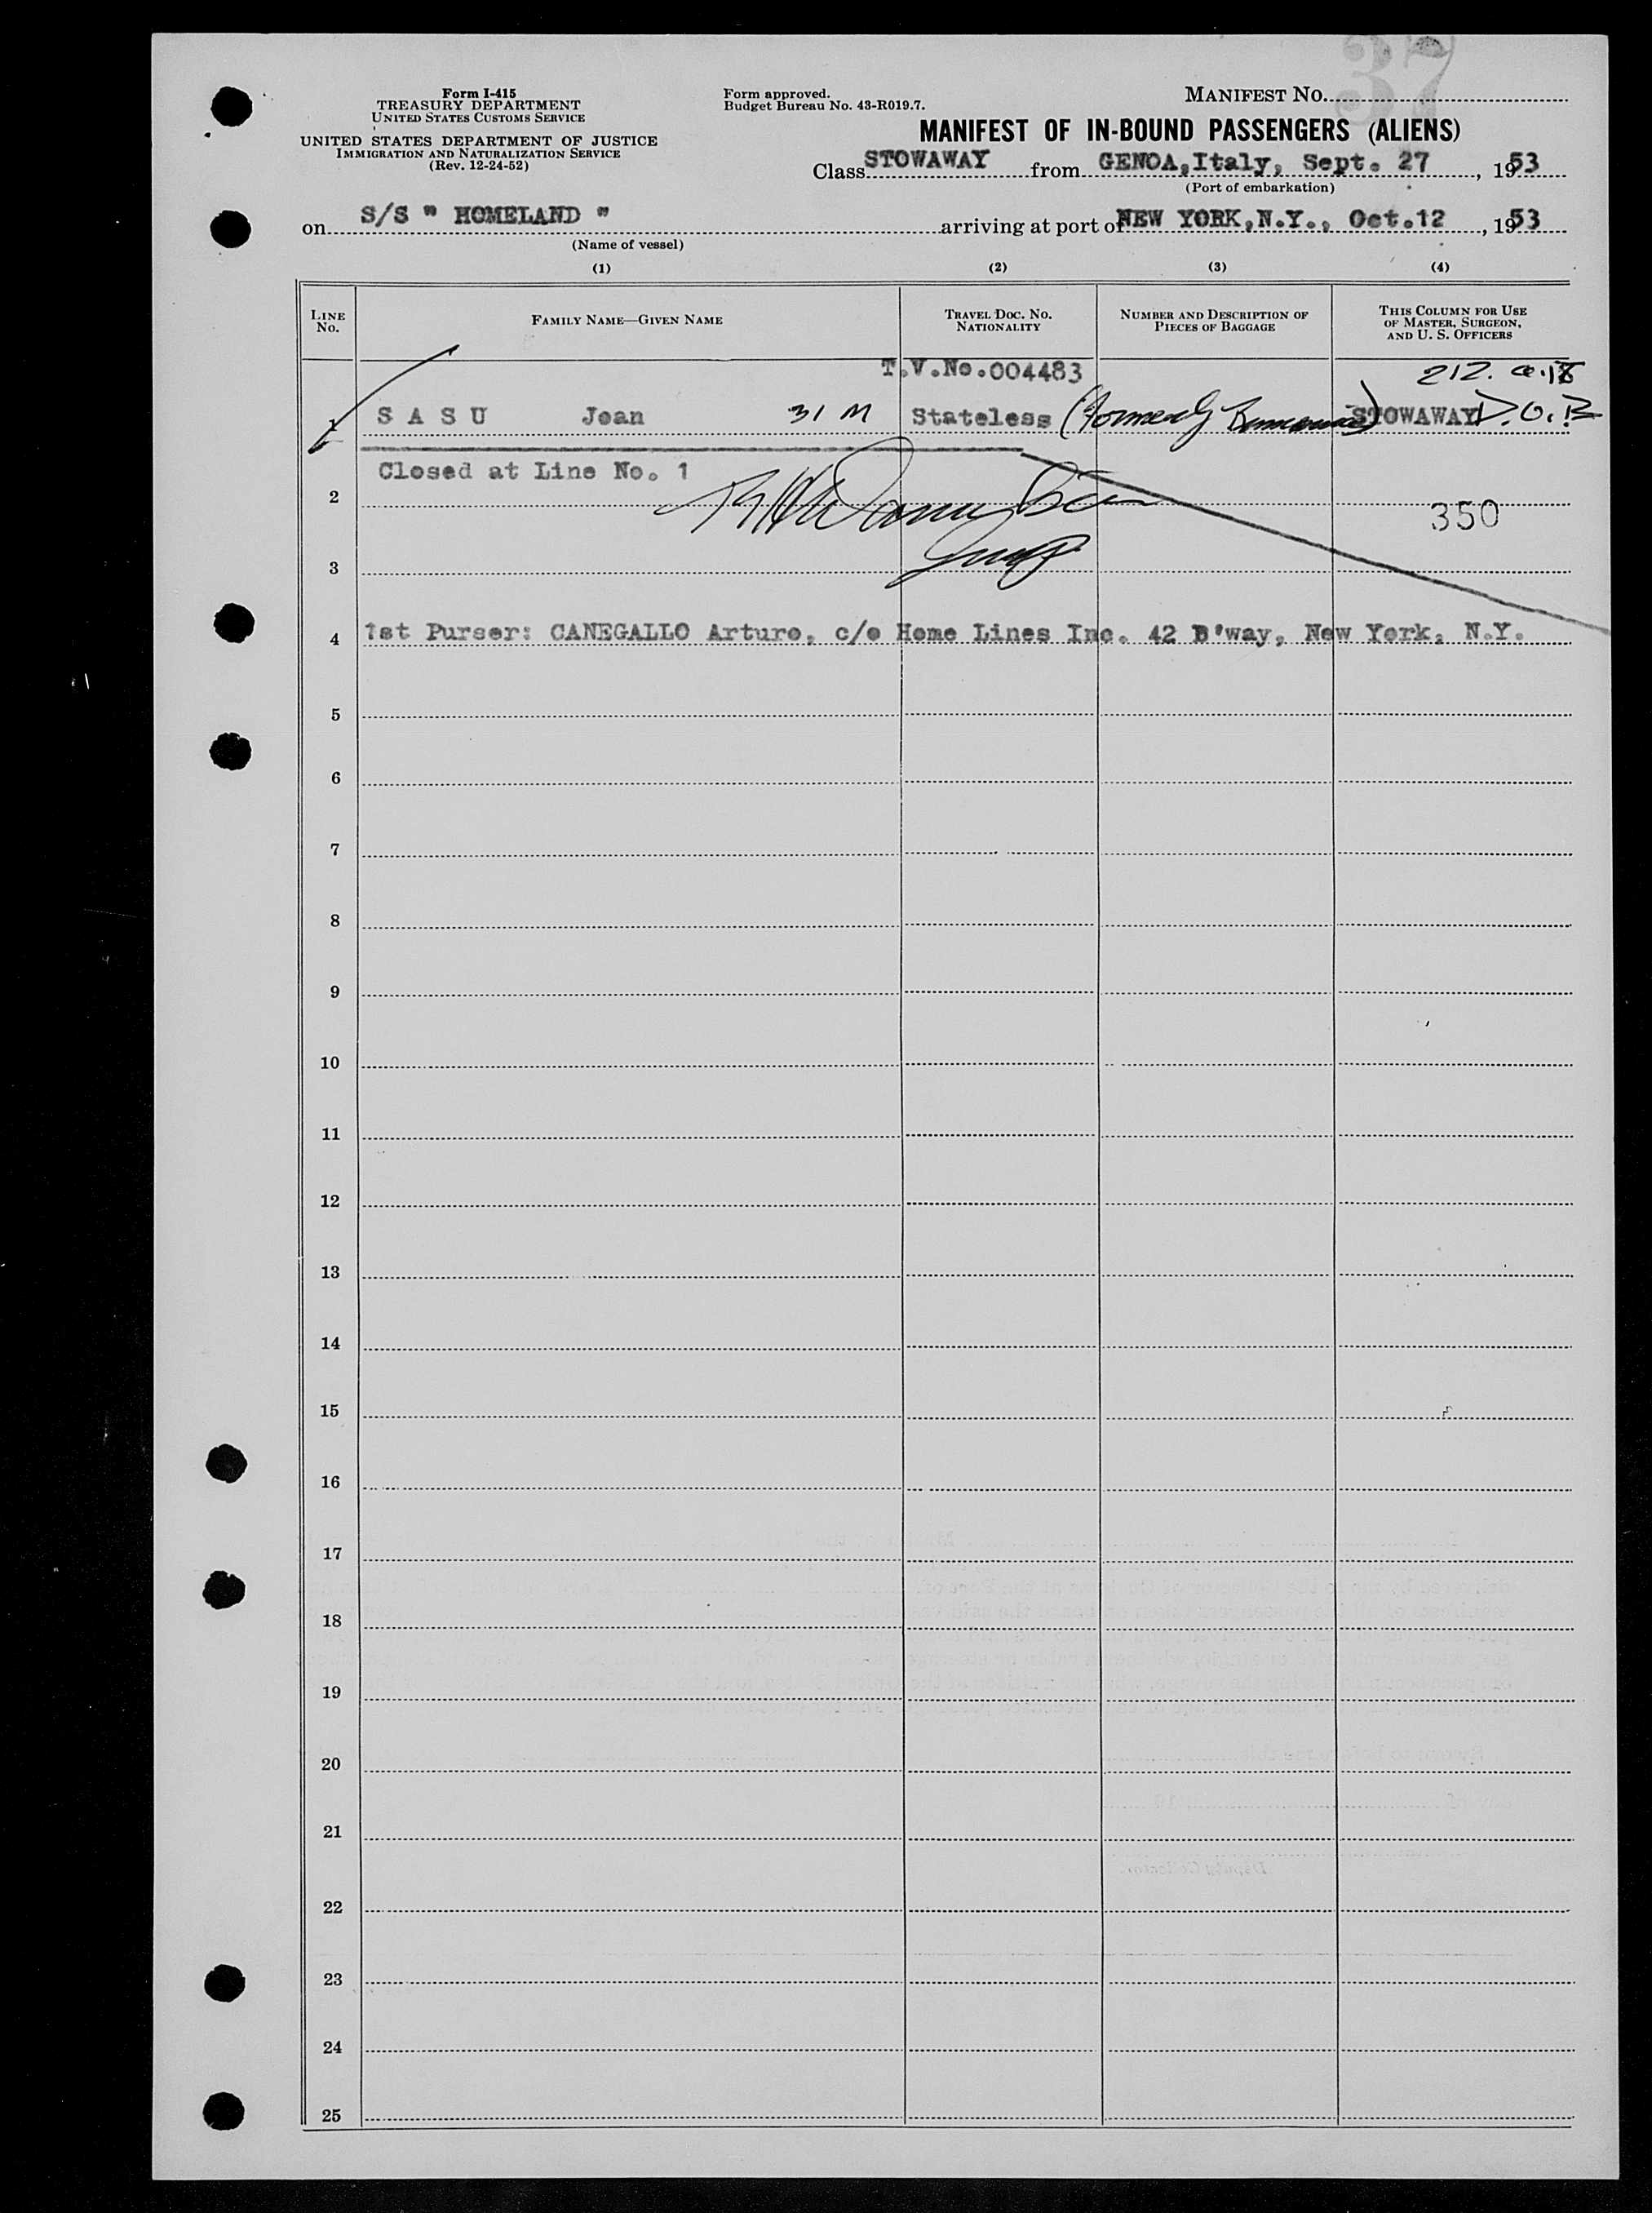 37
Form I-415
TREASURY DEPARTMENT
UNITED STATES CUSTOMS SERVICE
UNITED STATES DEPARTMENT OF JUSTICE
IMMIGRATION AND NATURALIZATION SERVICE
(Rev. 12-24-52)
Form approved.
Budget Bureau No. 43-R019.7.
MANIFEST NO.
MANIFEST OF IN-BOUND PASSENGERS (ALIENS)
Class STOWAWAY from GENOA, Italy, Sept. 27, 1953
(Port of embarkation)
on S/S " HOMELAND " arriving at port of NEW YORK, N.Y., Oct. 12, 1953
(Name of vessel)
(1) (2) (3) (4)
LINE No. FAMILY NAME—GIVEN NAME TRAVEL DOC. NO. NATIONALITY NUMBER AND DESCRIPTION OF PIECES OF BAGGAGE THIS COLUMN FOR USE OF MASTER, SURGEON, AND U. S. OFFICERS
T.V.No.004483 212. a.18
1 S A S U Jean 31 M Stateless (formerly STOWAWAY
Closed at Line No. 1
2 350
3
4 1st Purser: CANEGALLO Arturo, c/o Home Lines Inc. 42 B'way, New York, N.Y.
5
6
7
8
9
10
11
12
13
14
15
16
17
18
19
20
21
22
23
24
25